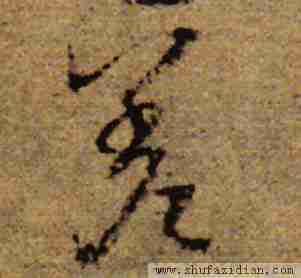 差
www.shufazidian.com